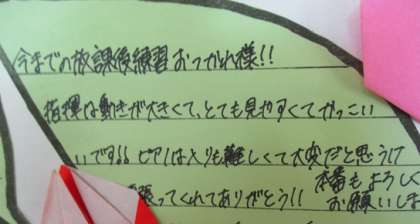 今までの放課後練習おつかれ様!!
指揮は動きが大きくて、とても見やすくてかっこい
いです!! ピアノは入りも難しくて大変だと思うけ
張ってくれてありがとう!!
本番もよろしく
お願いし